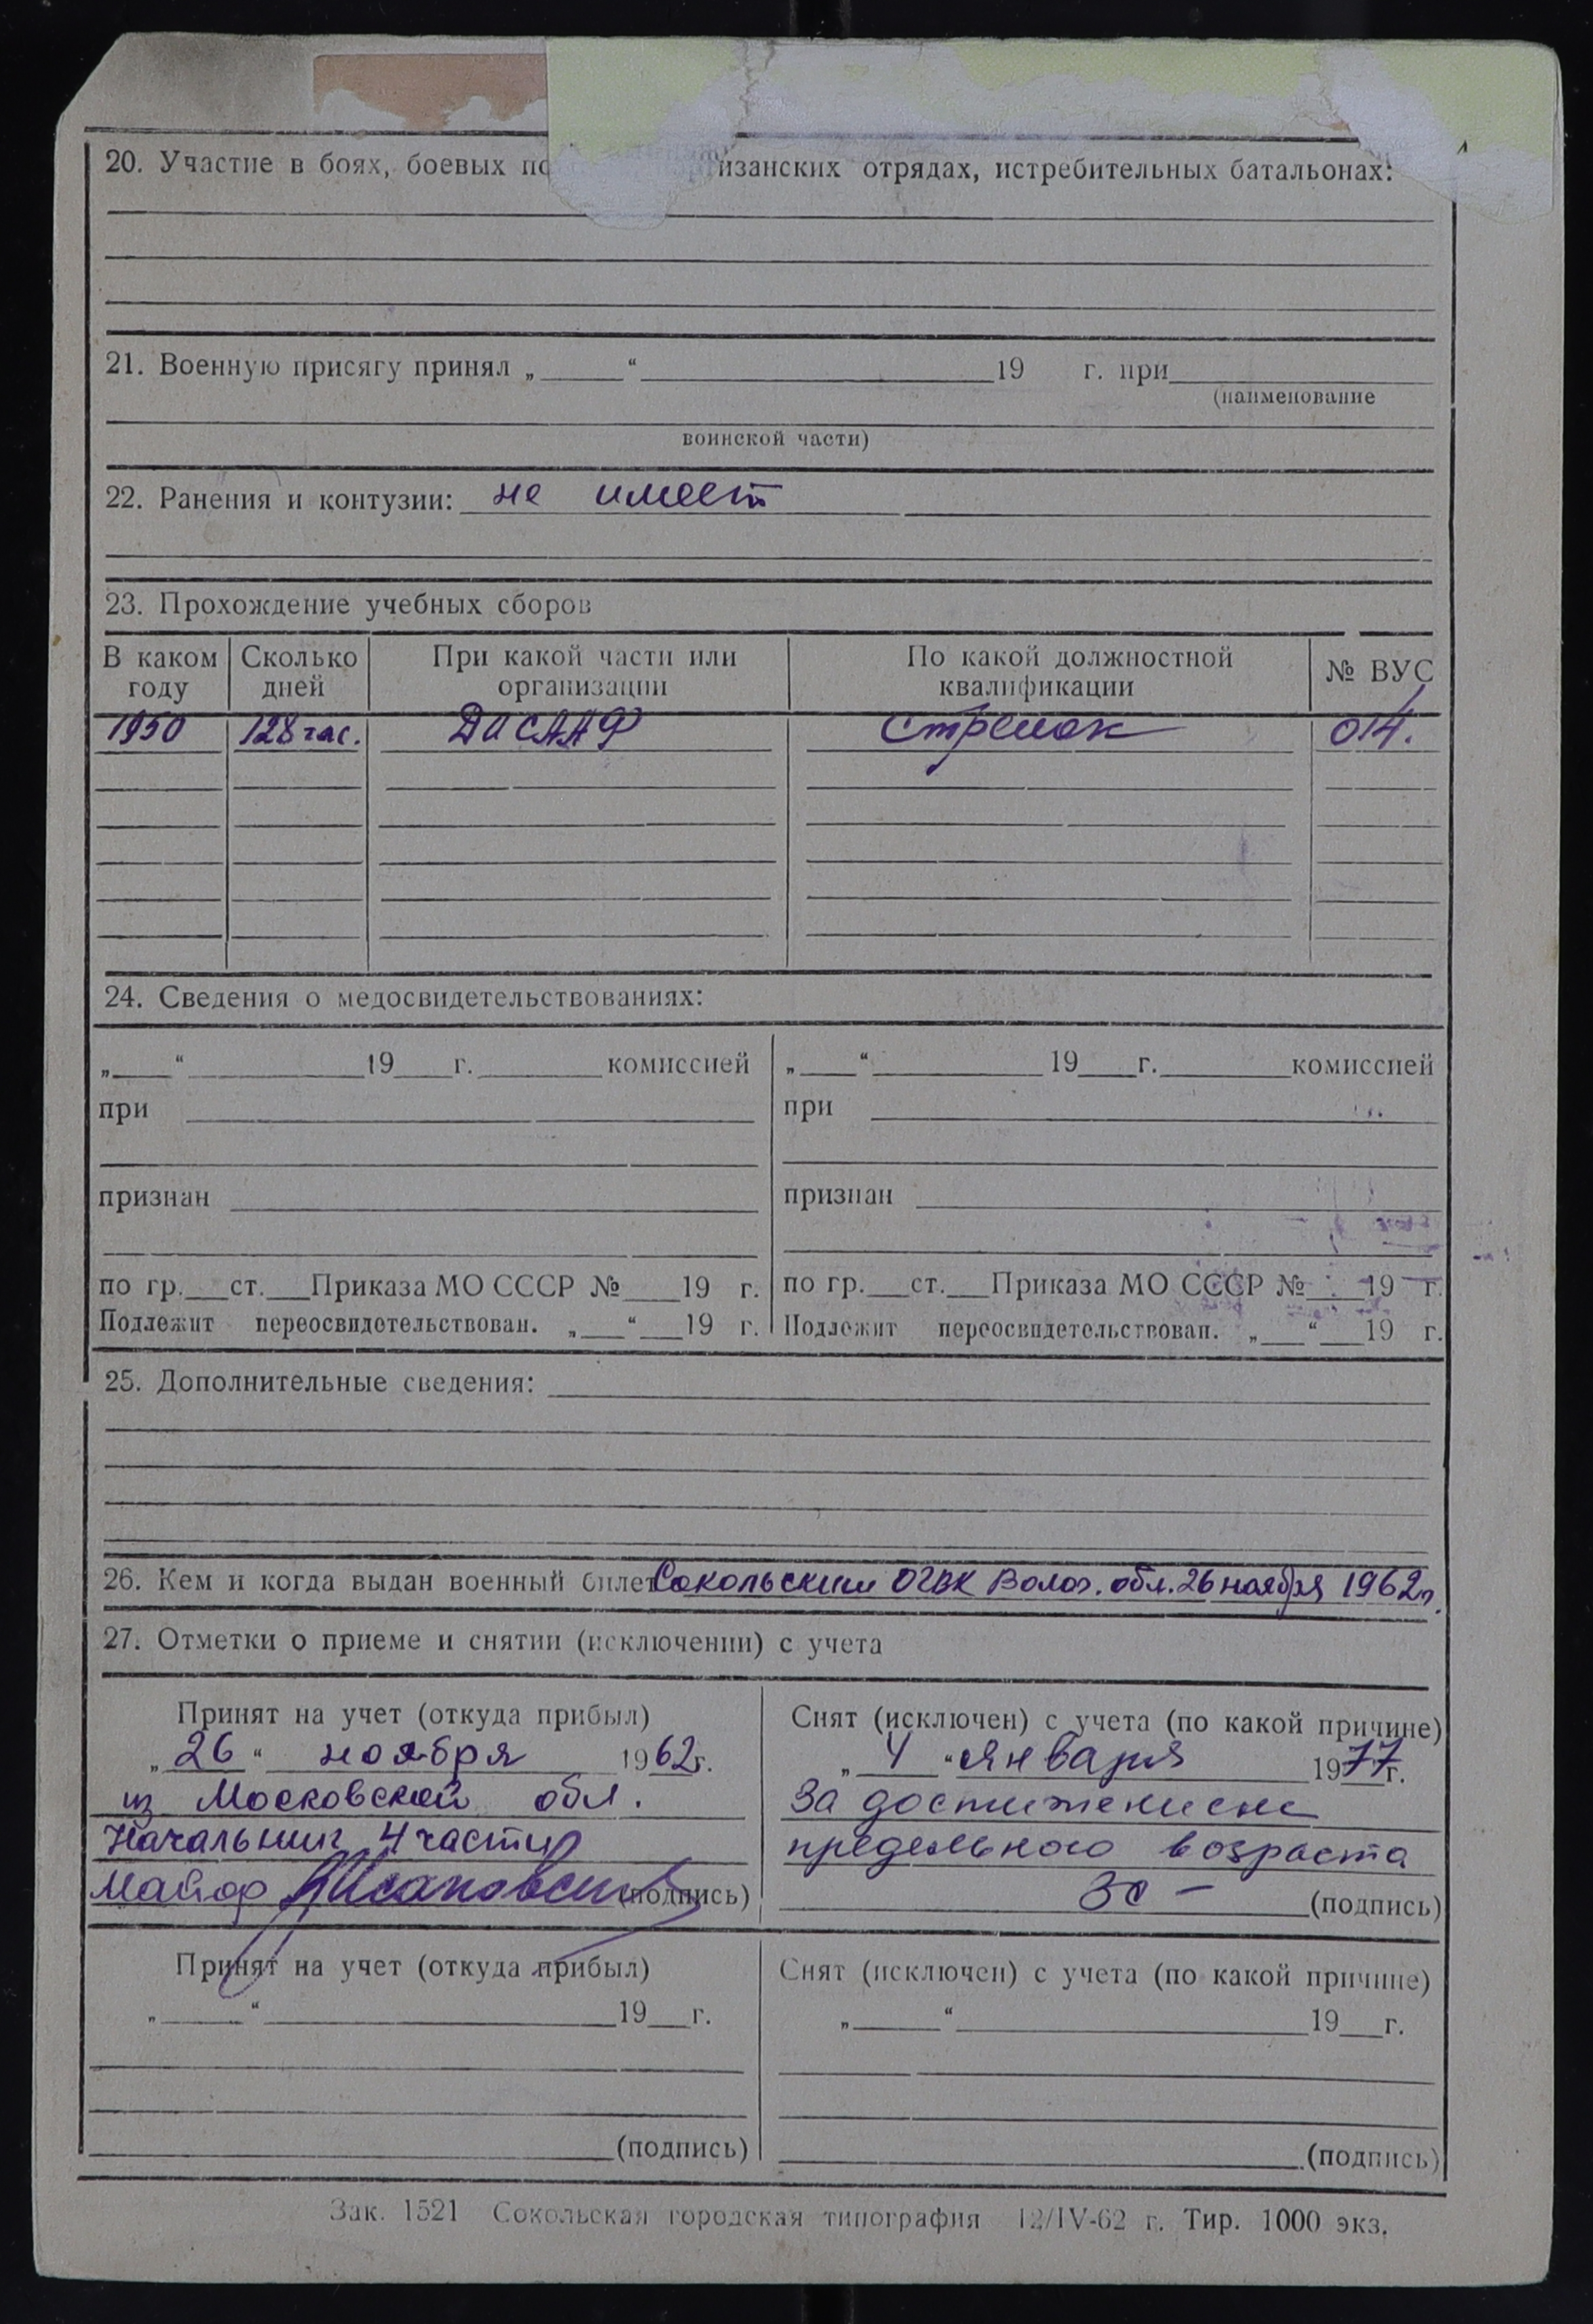 20. Участие в боях, боевых по изанских отрядах, истребительных батальонах:
21. Военную присягу принял „ “ 19 г. при
(наименование
воинской части)
22. Ранения и контузии: не имеет
23. Прохождение учебных сборов
В каком году Сколько дней При какой части или организации По какой должностной квалификации № ВУС
1950 128 час. ДОСААФ стрелок 014.
24. Сведения о медосвидетельствованиях:
„ “ 19 г. комиссией „ “ 19 г. комиссией
при при
признан признан
по гр. ст. Приказа МО СССР № 19 г. по гр. ст. Приказа МО СССР № 19 г.
Подлежит переосвидетельствован. „ “ 19 г. Подлежит переосвидетельствован. „ “ 19 г.
25. Дополнительные сведения:
26. Кем и когда выдан военный билет Сокольским ОГВК Волог. обл. 26 ноября 1962г.
27. Отметки о приеме и снятии (исключении) с учета
Принят на учет (откуда прибыл)
„ 26 “ ноября 1962г.
из Московской обл.
Начальник 4 части
майор (подпись)
Снят (исключен) с учета (по какой причине)
„ 4 “ января 1977г.
За достижением
предельного возраста
(подпись)
Принят на учет (откуда прибыл)
„ “ 19 г.
(подпись)
Снят (исключен) с учета (по какой причине)
„ “ 19 г.
(подпись)
Зак. 1521 Сокольская городская типография 12/IV-62 г. Тир. 1000 экз.